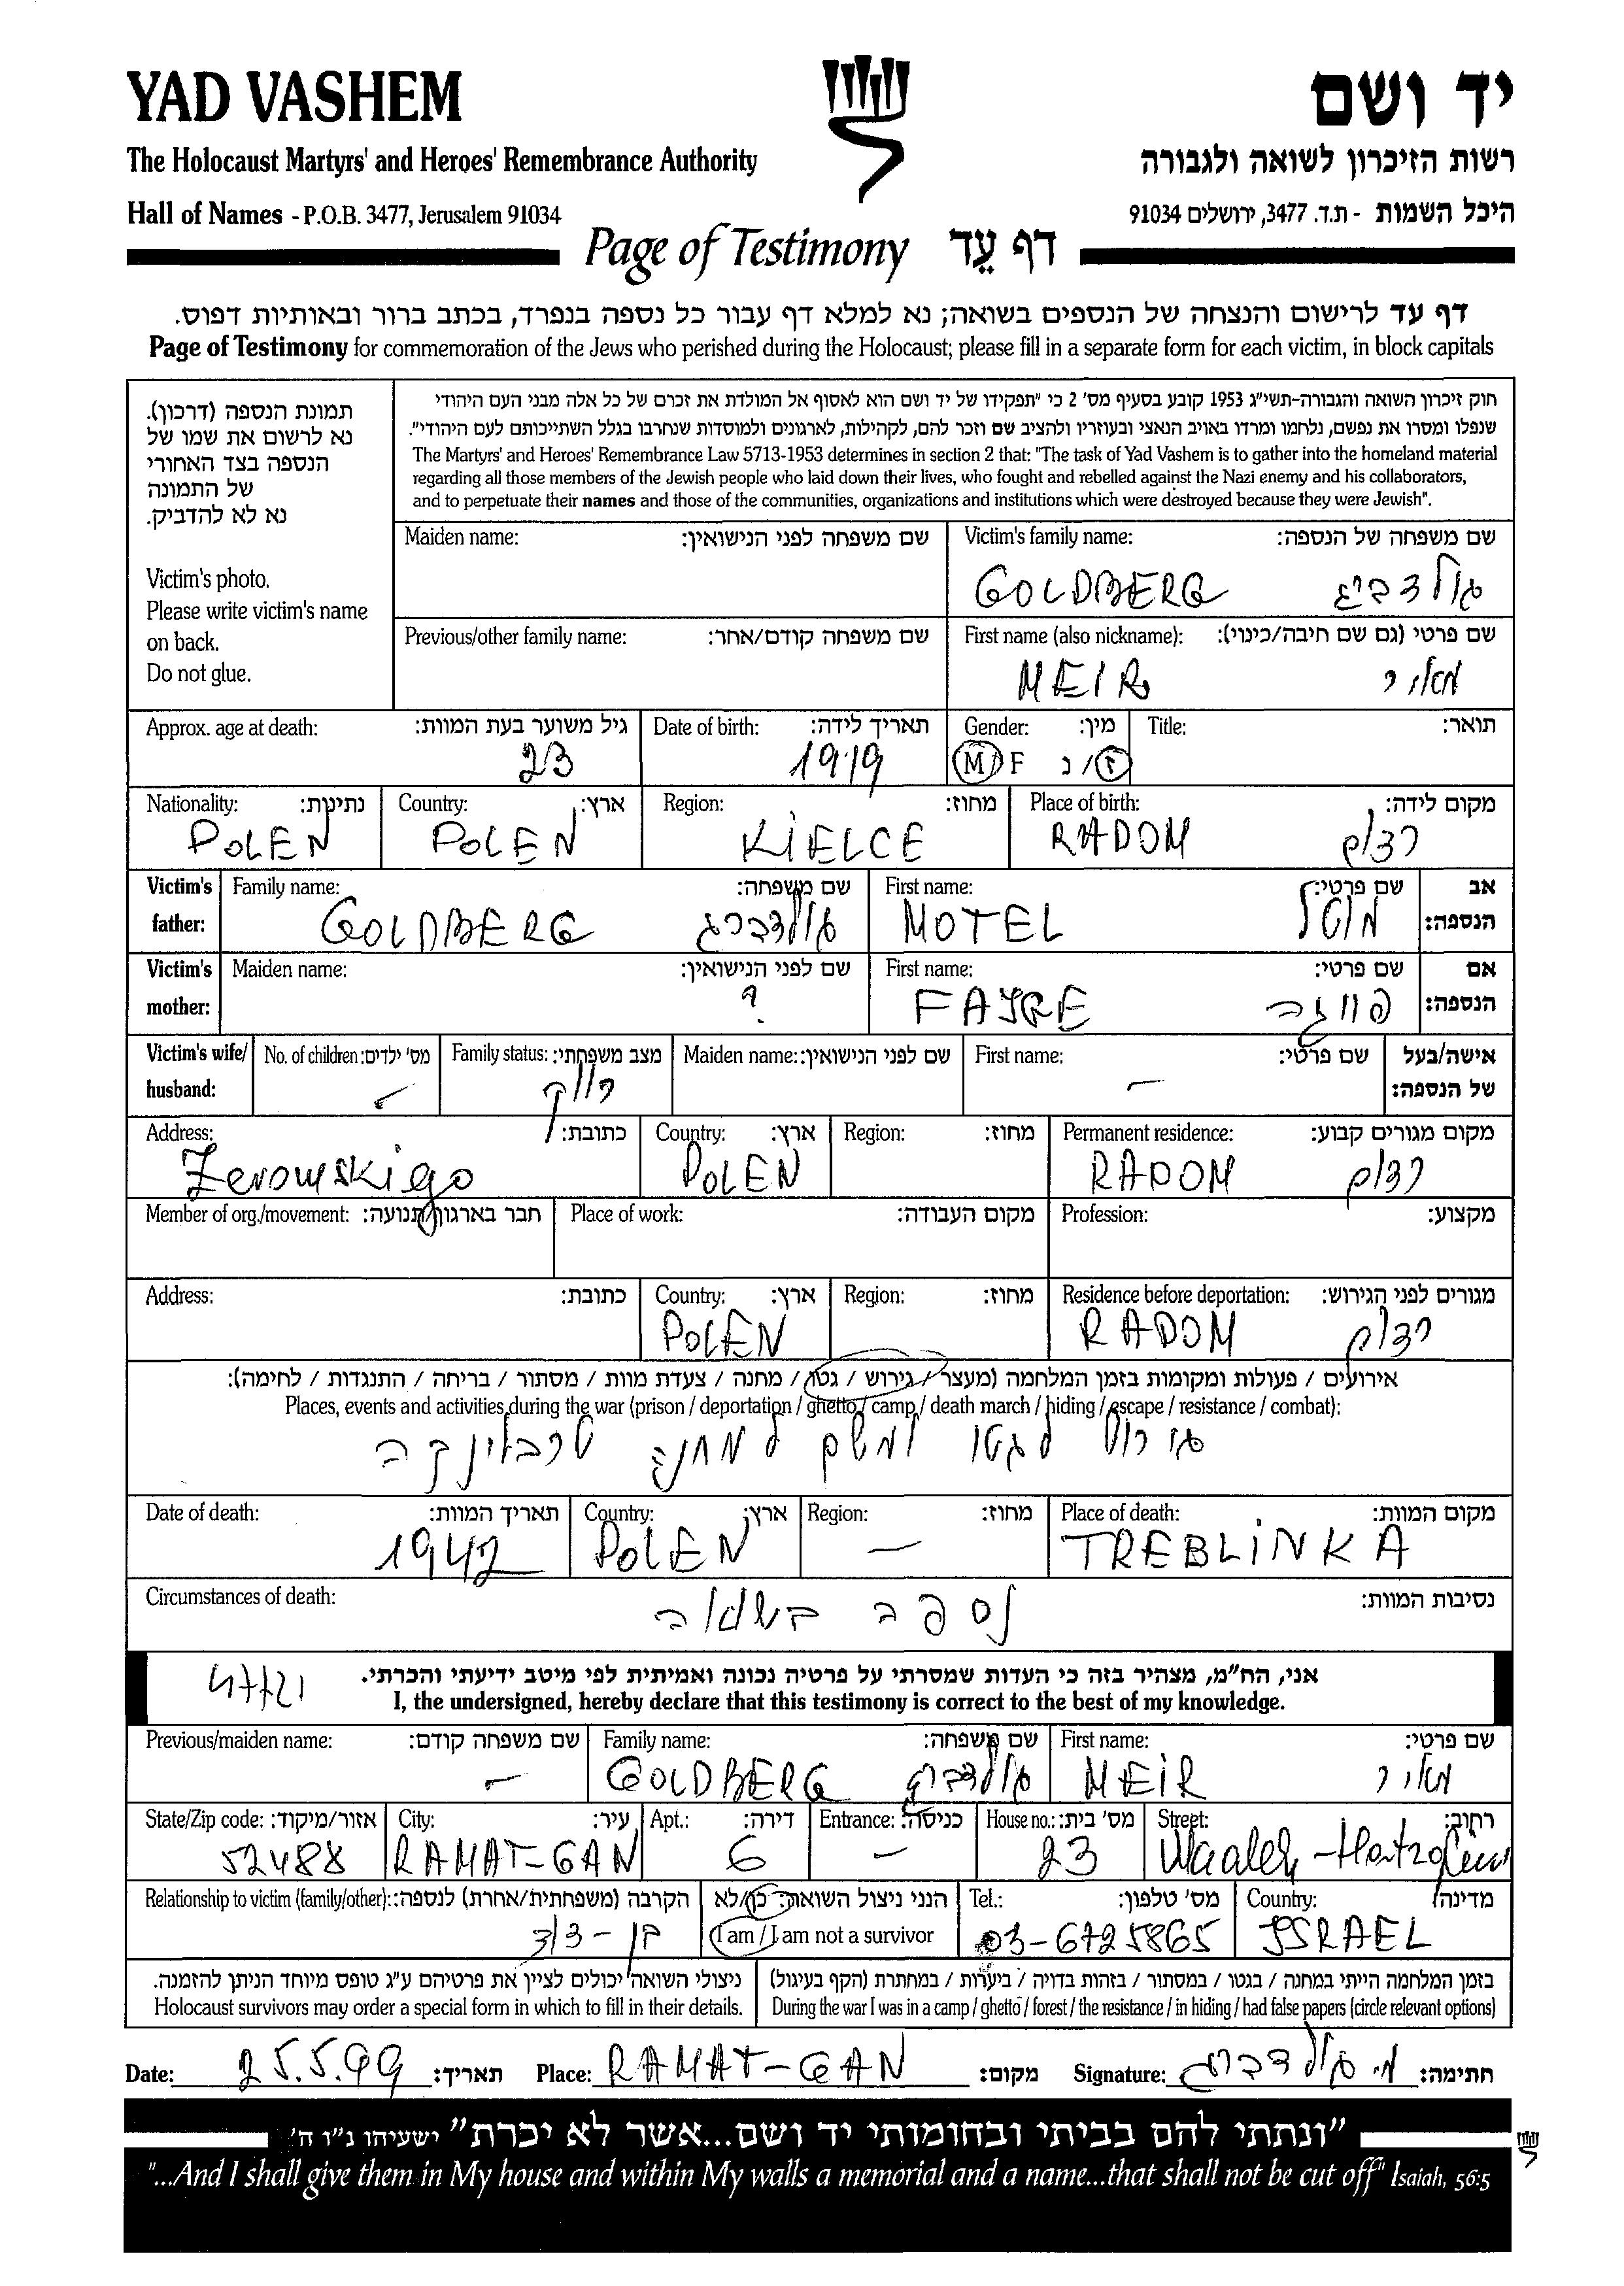 YAD VASHEM יד ושם
The Holocaust Martyrs' and Heroes' Remembrance Authority רשות הזיכרון לשואה ולגבורה
Hall of Names - P.O.B. 3477, Jerusalem 91034 היכל השמות - ת.ד. 3477, ירושלים 91034
Page of Testimony דף עֵד
דף עד לרישום והנצחה של הנספים בשואה; נא למלא דף עבור כל נספה בנפרד, בכתב ברור ובאותיות דפוס.
Page of Testimony for commemoration of the Jews who perished during the Holocaust; please fill in a separate form for each victim, in block capitals
תמונת הנספה (דרכון).
נא לרשום את שמו של
הנספה בצד האחורי
של התמונה
נא לא להדביק.
Victim's photo.
Please write victim's name
on back.
Do not glue.
חוק זיכרון השואה והגבורה-תשי"ג 1953 קובע בסעיף מס' 2 כי "תפקידו של יד ושם הוא לאסוף אל המולדת את זכרם של כל אלה מבני העם היהודי
שנפלו ומסרו את נפשם, נלחמו ומרדו באויב הנאצי ובעוזריו ולהציב שם וזכר להם, לקהילות, לארגונים ולמוסדות שנחרבו בגלל השתייכותם לעם היהודי".
The Martyrs' and Heroes' Remembrance Law 5713-1953 determines in section 2 that: "The task of Yad Vashem is to gather into the homeland material
regarding all those members of the Jewish people who laid down their lives, who fought and rebelled against the Nazi enemy and his collaborators,
and to perpetuate their names and those of the communities, organizations and institutions which were destroyed because they were Jewish".
Maiden name: שם משפחה לפני הנישואין: Victim's family name: שם משפחה של הנספה:
GOLDBERG גולדברג
Previous/other family name: שם משפחה קודם/אחר: First name (also nickname): שם פרטי (גם שם חיבה/כינוי):
MEIR מאיר
Approx. age at death: גיל משוער בעת המוות: Date of birth: תאריך לידה: Gender: מין: Title: תואר:
23 1919 M/F ז/נ
Nationality: נתינות: Country: ארץ: Region: מחוז: Place of birth: מקום לידה:
POLEN POLEN KIELCE RADOM רדום
Victim's father: Family name: שם משפחה: First name: שם פרטי: אב הנספה:
GOLDBERG גולדברג MOTEL מוטל
Victim's mother: Maiden name: שם לפני הנישואין: First name: שם פרטי: אם הנספה:
? FAJGE פייגה
Victim's wife/ husband: No. of children: מס' ילדים: Family status: מצב משפחתי: Maiden name: שם לפני הנישואין: First name: שם פרטי: אישה/בעל של הנספה:
- רווק -
Address: כתובת: Country: ארץ: Region: מחוז: Permanent residence: מקום מגורים קבוע:
Zerowskiego POLEN RADOM רדום
Member of org./movement: חבר בארגון/תנועה: Place of work: מקום העבודה: Profession: מקצוע:
Address: כתובת: Country: ארץ: Region: מחוז: Residence before deportation: מגורים לפני הגירוש:
POLEN RADOM רדום
אירועים / פעולות ומקומות בזמן המלחמה (מעצר / גירוש / גטו / מחנה / צעדת מוות / מסתור / בריחה / התנגדות / לחימה):
Places, events and activities during the war (prison / deportation / ghetto / camp / death march / hiding / escape / resistance / combat):
גורש לגטו ומשם למחנה טרבלינקה
Date of death: תאריך המוות: Country: ארץ: Region: מחוז: Place of death: מקום המוות:
1942 POLEN - TREBLINKA
Circumstances of death: נסיבות המוות:
נספה בשואה
אני, הח"מ, מצהיר בזה כי העדות שמסרתי על פרטיה נכונה ואמיתית לפי מיטב ידיעתי והכרתי.
I, the undersigned, hereby declare that this testimony is correct to the best of my knowledge.
Previous/maiden name: שם משפחה קודם: Family name: שם משפחה: First name: שם פרטי:
- GOLDBERG גולדברג MEIR מאיר
State/Zip code: אזור/מיקוד: City: עיר: Apt.: דירה: Entrance: כניסה: House no.: מס' בית: Street: רחוב:
52488 RAMAT-GAN 6 - 23
Relationship to victim (family/other): הקרבה (משפחתית/אחרת) לנספה: הנני ניצול השואה: כן/לא Tel.: מס' טלפון: Country: מדינה:
בן-דוד I am / I am not a survivor 03-6725865 ISRAEL
ניצולי השואה יכולים לציין את פרטיהם ע"ג טופס מיוחד הניתן להזמנה. בזמן המלחמה הייתי במחנה / בגטו / במסתור / בזהות בדויה / ביערות / במחתרת (הקף בעיגול)
Holocaust survivors may order a special form in which to fill in their details. During the war I was in a camp / ghetto / forest / the resistance / in hiding / had false papers (circle relevant options)
Date: 25.5.99 תאריך: Place: RAMAT-GAN מקום: Signature: מ. גולדברג חתימה:
"ונתתי להם בביתי ובחומותי יד ושם...אשר לא יכרת" ישעיהו נ"ו ה'
"...And I shall give them in My house and within My walls a memorial and a name...that shall not be cut off" Isaiah, 56:5